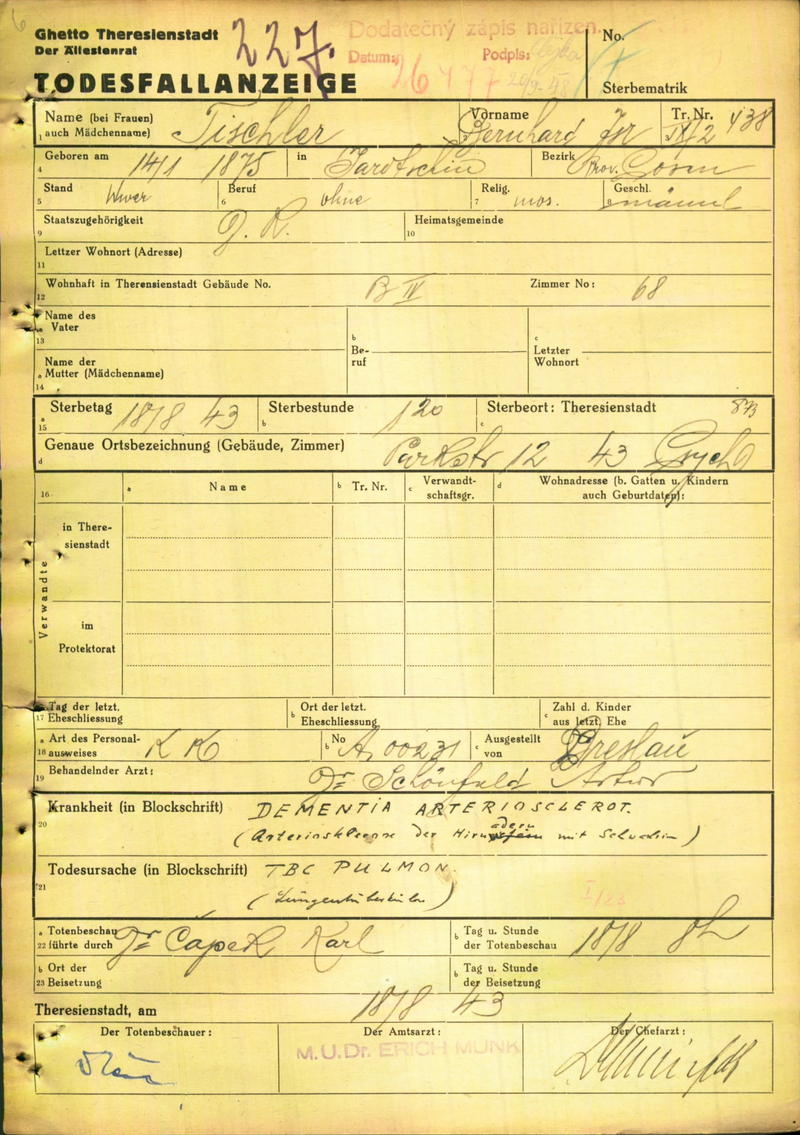 Ghetto Theresienstadt
Der Ältestenrat
227.
Dodatečný zápis nařízen.
Datum:
Podpis:
No.
TODESFALLANZEIGE
Sterbematrik
Name (bei Frauen) auch Mädchenname) Tischler
Vorname Bernhard Isr
Tr. Nr. IX/2 438
1
4 Geboren am 14/1 1875 in Jarotschin Bezirk Prov. Posen
5 Stand Witwer 6 Beruf ohne 7 Relig. mos. Geschl. männl
9 Staatszugehörigkeit D. R. 10 Heimatsgemeinde
11 Letzter Wohnort (Adresse)
12 Wohnhaft in Theresienstadt Gebäude No. B IV Zimmer No: 68
13 a Name des Vater
b Beruf
c Letzter Wohnort
14 a Name der Mutter (Mädchenname)
15 a Sterbetag 18/8 43 b Sterbestunde 120 c Sterbeort: Theresienstadt 873
d Genaue Ortsbezeichnung (Gebäude, Zimmer) Parkstr 12 43
16 a Name b Tr. Nr. c Verwandtschaftsgr. d Wohnadresse (b. Gatten u. Kindern auch Geburtdaten):
Verwandte
in Theresienstadt
im Protektorat
17 a Tag der letzt. Eheschliessung b Ort der letzt. Eheschliessung c Zahl d. Kinder aus letzt. Ehe
18 a Art des Personalausweises KK b No A. 00231 c Ausgestellt von Breslau
19 Behandelnder Arzt: Dr Schönfeld Artur
20 Krankheit (in Blockschrift) DEMENTIA ARTERIOSCLEROT.
(Arteriosklerose der Hirnadern mit)
21 Todesursache (in Blockschrift) TBC PULMON.
(Lungentuberkulose)
22 a Totenbeschau führte durch Dr Capek Karl b Tag u. Stunde der Totenbeschau 18/8 8h
23 b Ort der Beisetzung b Tag u. Stunde der Beisetzung
Theresienstadt, am 18/8 43
Der Totenbeschauer: Der Amtsarzt: Der Chefarzt:
M.U.Dr. ERICH MUNK